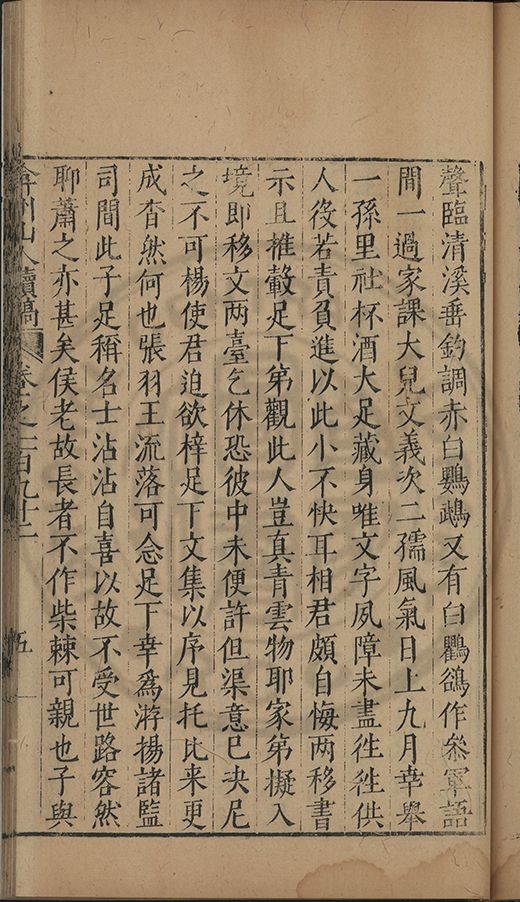 聲臨清溪垂釣調赤白鸚鵡又有白鸜鵒作叅軍語
間一過家課大兒文義次二孺風氣日上九月幸舉
一孫里社杯酒大足藏身唯文字夙障未盡徃徃供
人役若責負進以此小不快耳相君頗自悔兩移書
示且推轂足下第觀此人豈真青雲物耶家弟擬入
境即移文两臺乞休恐彼中未便許但渠意已决尼
之不可楊使君迫欲梓足下文集以序見托比来更
成杳然何也張羽王流落可念足下幸爲游揚諸監
司間此子足稱名士沾沾自喜以故不受世路容然
聊蕭之亦甚矣侯老故長者不作柴棘可親也子與
弇州山人續稿 卷之一百九十二 五